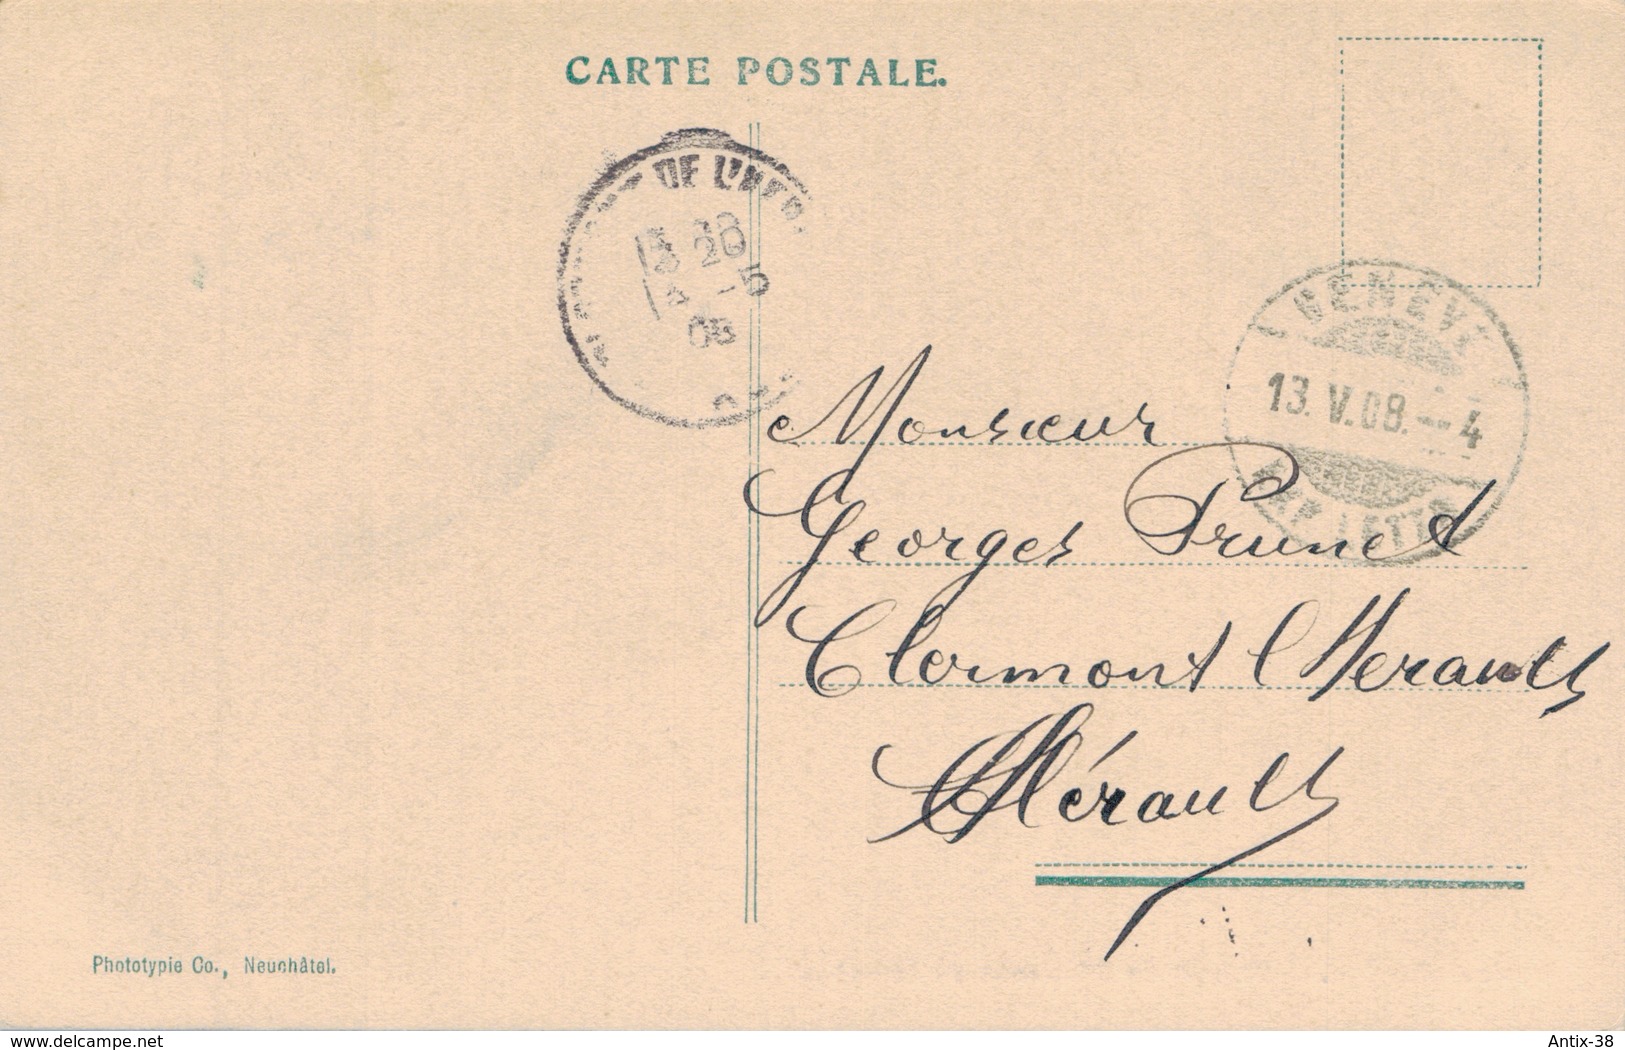 CARTE POSTALE.
DE L'HER
20
-5
08
GENÈVE
13.V.08.--4
EXP. LETTR
Monsieur
Georges Prunet
Clermont l'Herault
Hérault
Phototypie Co., Neuchâtel.
www.delcampe.net
Antix-38